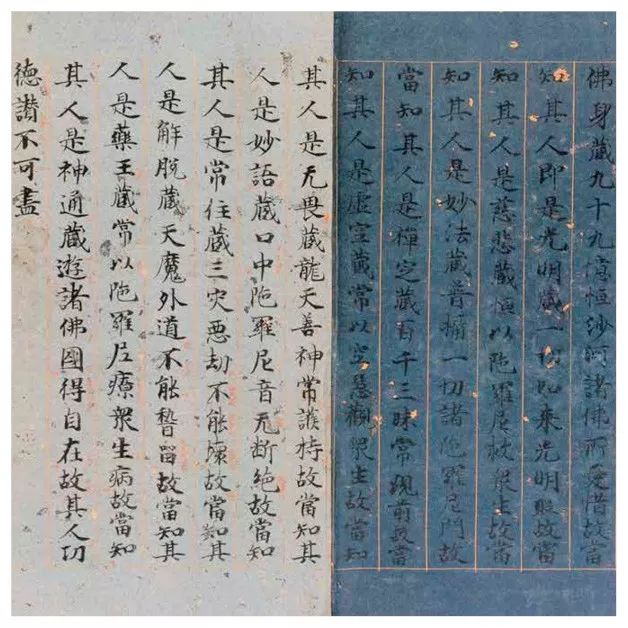 佛身藏九十九億恒沙河諸佛所愛惜故當
知其人即是光明藏一切如來光明照故當
知其人是慈悲藏恒以陁羅尼救衆生故當
知其人是妙法藏普攝一切諸陁羅尼門故
當知其人是禪定藏百千三昧常現前故當
知其人是虛空藏常以空慧觀衆生故當知
其人是无畏藏龍天善神常護持故當知其
人是妙語藏口中陁羅尼音无斷絕故當知
其人是常住藏三灾惡劫不能壞故當知其
人是解脫藏天魔外道不能稽留故當知其
人是藥王藏常以陁羅尼療衆生病故當知
其人是神通藏遊諸佛國得自在故其人功
德讃不可盡